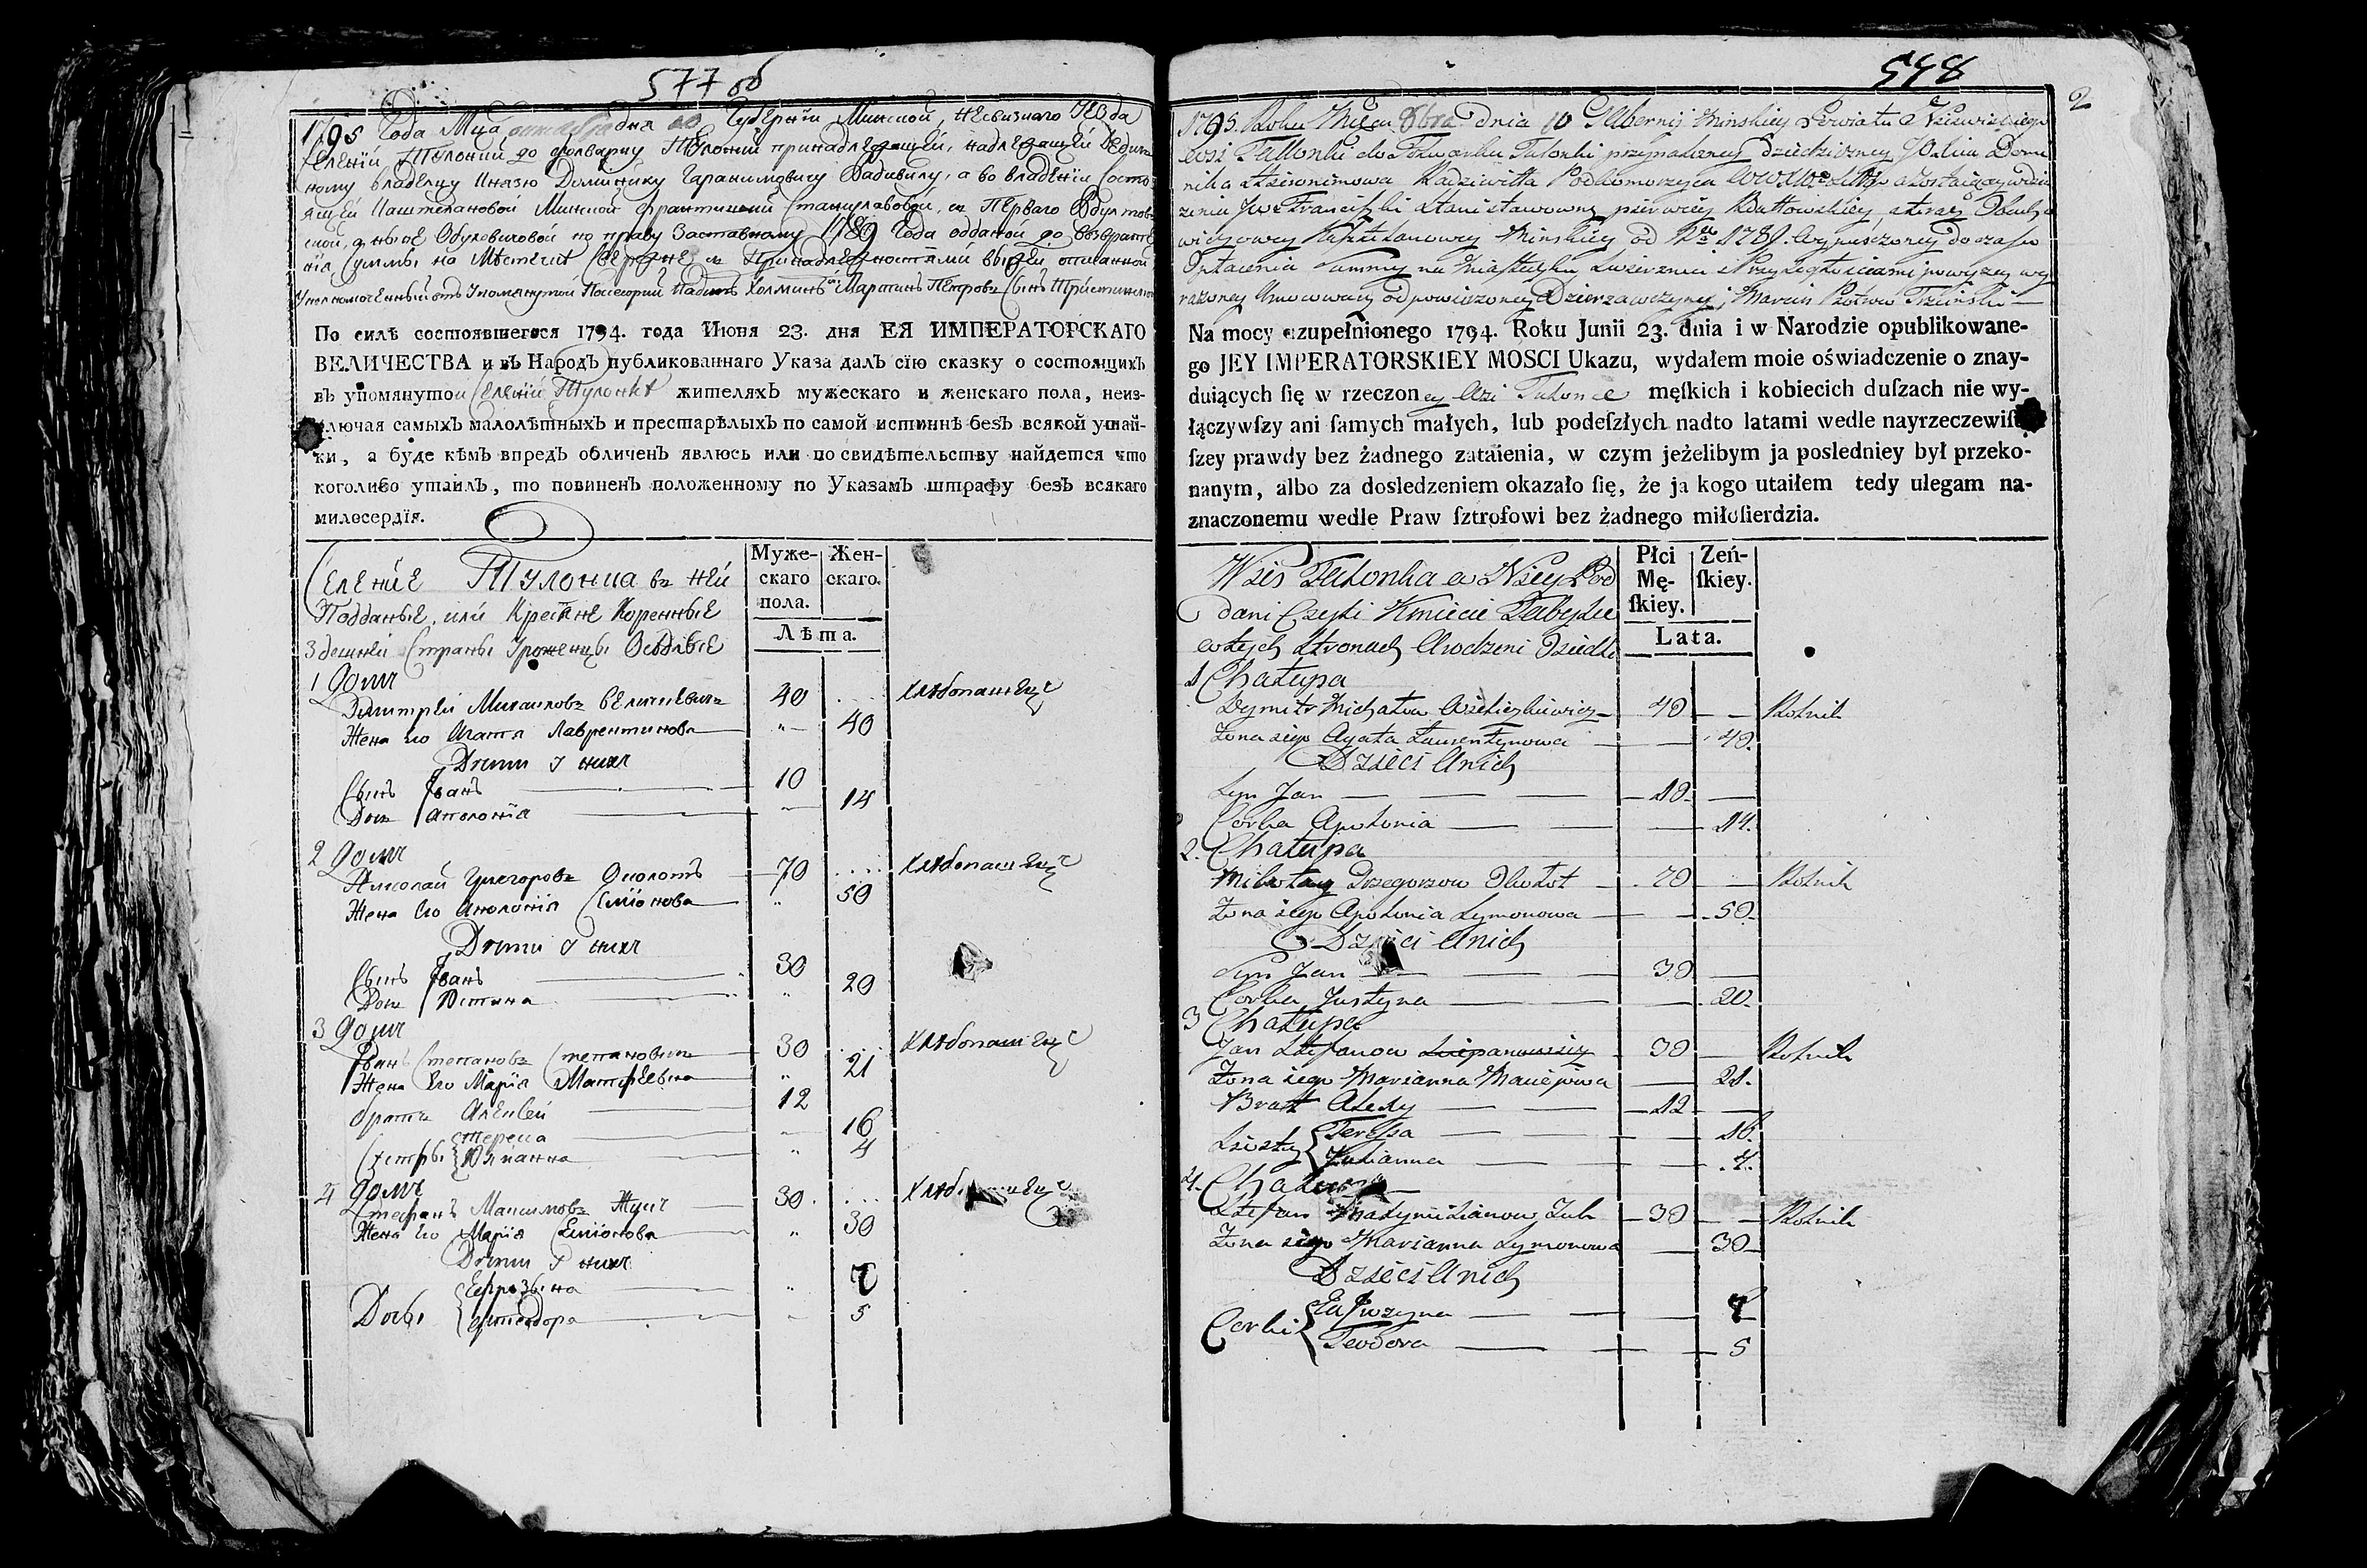 577 об
1795 Года Мца дня 10 Губерніи Минской, Несвизкаго Уезда
Селеніи Тулонки до фолварку Тулонки принадлежащей, надлежащей
ному владелцу Князю Доминику Гаранимовичу Радивилу, а во владеніи состо-
ящей Каштелановой Минской Францишки Станиславовой, съ Перваго
а ныне Обуховичовой по праву Заставному 1789 Года отданой до возврате
нія Суммы на Местечке Свержне съ Принадлежностями выжей описанной
Уполномоченный отъ Упомянутой Мартинъ Петровъ Сынъ
По силѣ состоявшегося 1794. года Июня 23. дня ЕЯ ИМПЕРАТОРСКАГО
ВЕЛИЧЕСТВА и въ Народъ публикованнаго Указа далъ сїю сказку о состоящихъ
въ упомянутои Селеніи Тулонке жителяхъ мужескаго и женскаго пола, неиз-
ключая самыхъ малолѣтныхъ и престарѣлыхъ по самой истиннѣ безъ всякой утай-
ки, а буде кѣмъ впредъ обличенъ явлюсь или по свидѣтельству найдется что
коголибо утаилъ, то повиненъ положенному по Указамъ штрафу безъ всякаго
милосердїя.
Селение Тулонка въ ней
Подданые, или Крестяне Коренные
Здешней Страны Уроженцы Оседлые
Муже-
скаго
пола.
Жен-
скаго.
Лѣта.
1 Домъ
Дмитрей Михаиловъ 40 .... хлѣбопашецъ
Жена Его Агата Лаврентинова 40
Дети У нихъ
Сынъ Иванъ 10
Дочь Аполонія 14
2 Домъ
Николай Григоровъ Околотъ 70 .... хлѣбопашецъ
Жена Его Аполонія Семіонова 50
Дети У нихъ
Сынъ Иванъ 30
Дочь Юстина 20
3 Домъ
Иванъ Степановъ Степановичъ 30 .... хлѣбопашецъ
Жена Его Марія Матфеевна 21
братъ Алексей 12
Сестры { Тереса 16
Юліанна 4
4 Домъ
Стефанъ Максимовъ Жукъ 30. ....
Жена Его Марія Семіонова 30
Дети У нихъ
Дочьи { Ефрозына 7
Феодора 5
578
2
1795. Roku Mięsca 8bra dnia 10 Gubernij Minskiey Powiatu Nieswizkiego
Wsi Tulonki do Folwarku Tulonki przynalezney dziedziczney JO. Xcia Domi
nika Hieronimowa Radziwiłła Podkomorzyca
JW. Franciszki Stanisławowny pierwiey teraz Obucho
wiczowey Kasztelanowey Minskiey od 1789. wypuszczoney do czasu
Opłacenia Summy na Miasteczku Swierzniu i Przyległosciami powyzey wy
razoney Umocowany od powierzoney Dzierzawczyney Marcin
Na mocy uzupełnionego 1794. Roku Junii 23. dnia i w Narodzie opublikowane-
go JEY IMPERATORSKIEY MOSCI Ukazu, wydałem moie oświadczenie o znay-
duiących ſię w rzeczoney Wsi Tulonce męſkich i kobiecich duſzach nie wy-
łączywſzy ani ſamych małych, lub podeſzłych nadto latami wedle nayrzeczewiſt-
ſzey prawdy bez żadnego zataienia, w czym jeżelibym ja posledniey był przeko-
nanym, albo za dosledzeniem okazało ſię, że ja kogo utaiłem tedy ulegam na-
znaczonemu wedle Praw ſztrofowi bez żadnego miłoſierdzia.
Wies Tulonka w Niey Pod
dani Czyli Kmiecie Tubylce
w tych Stronach Urodzeni Osiedli
Płci
Mę-
ſkiey.
Zeń-
ſkiey.
Lata.
1 Chałupa
Dymitr Michałow 40 Rolnik
Zona iego Agata Laurentynowa 40.
Dzieci Unich
Syn Jan 10
Corka Apolonia 14.
2. Chałupa
Mikołay Grzegorzow Okołot 70 Rolnik
Zona iego Apolonia Symonowa 50
Dzieci Unich
Syn Jan 30
Corka Justyna 20.
3 Chałupa
Jan Stefanow Sciepanowicz 30 Rolnik
Zona iego Marianna Maciejowa 21.
Brat Alexy 12
Siostry { Teressa 16.
Julianna 4.
4. Chałupa
Stefan Maxymilianow Zuk 30 Rolnik
Zona iego Marianna Symonowa 30
Dzieci Unich
Corki { Eufrozyna 7
Teodora 5